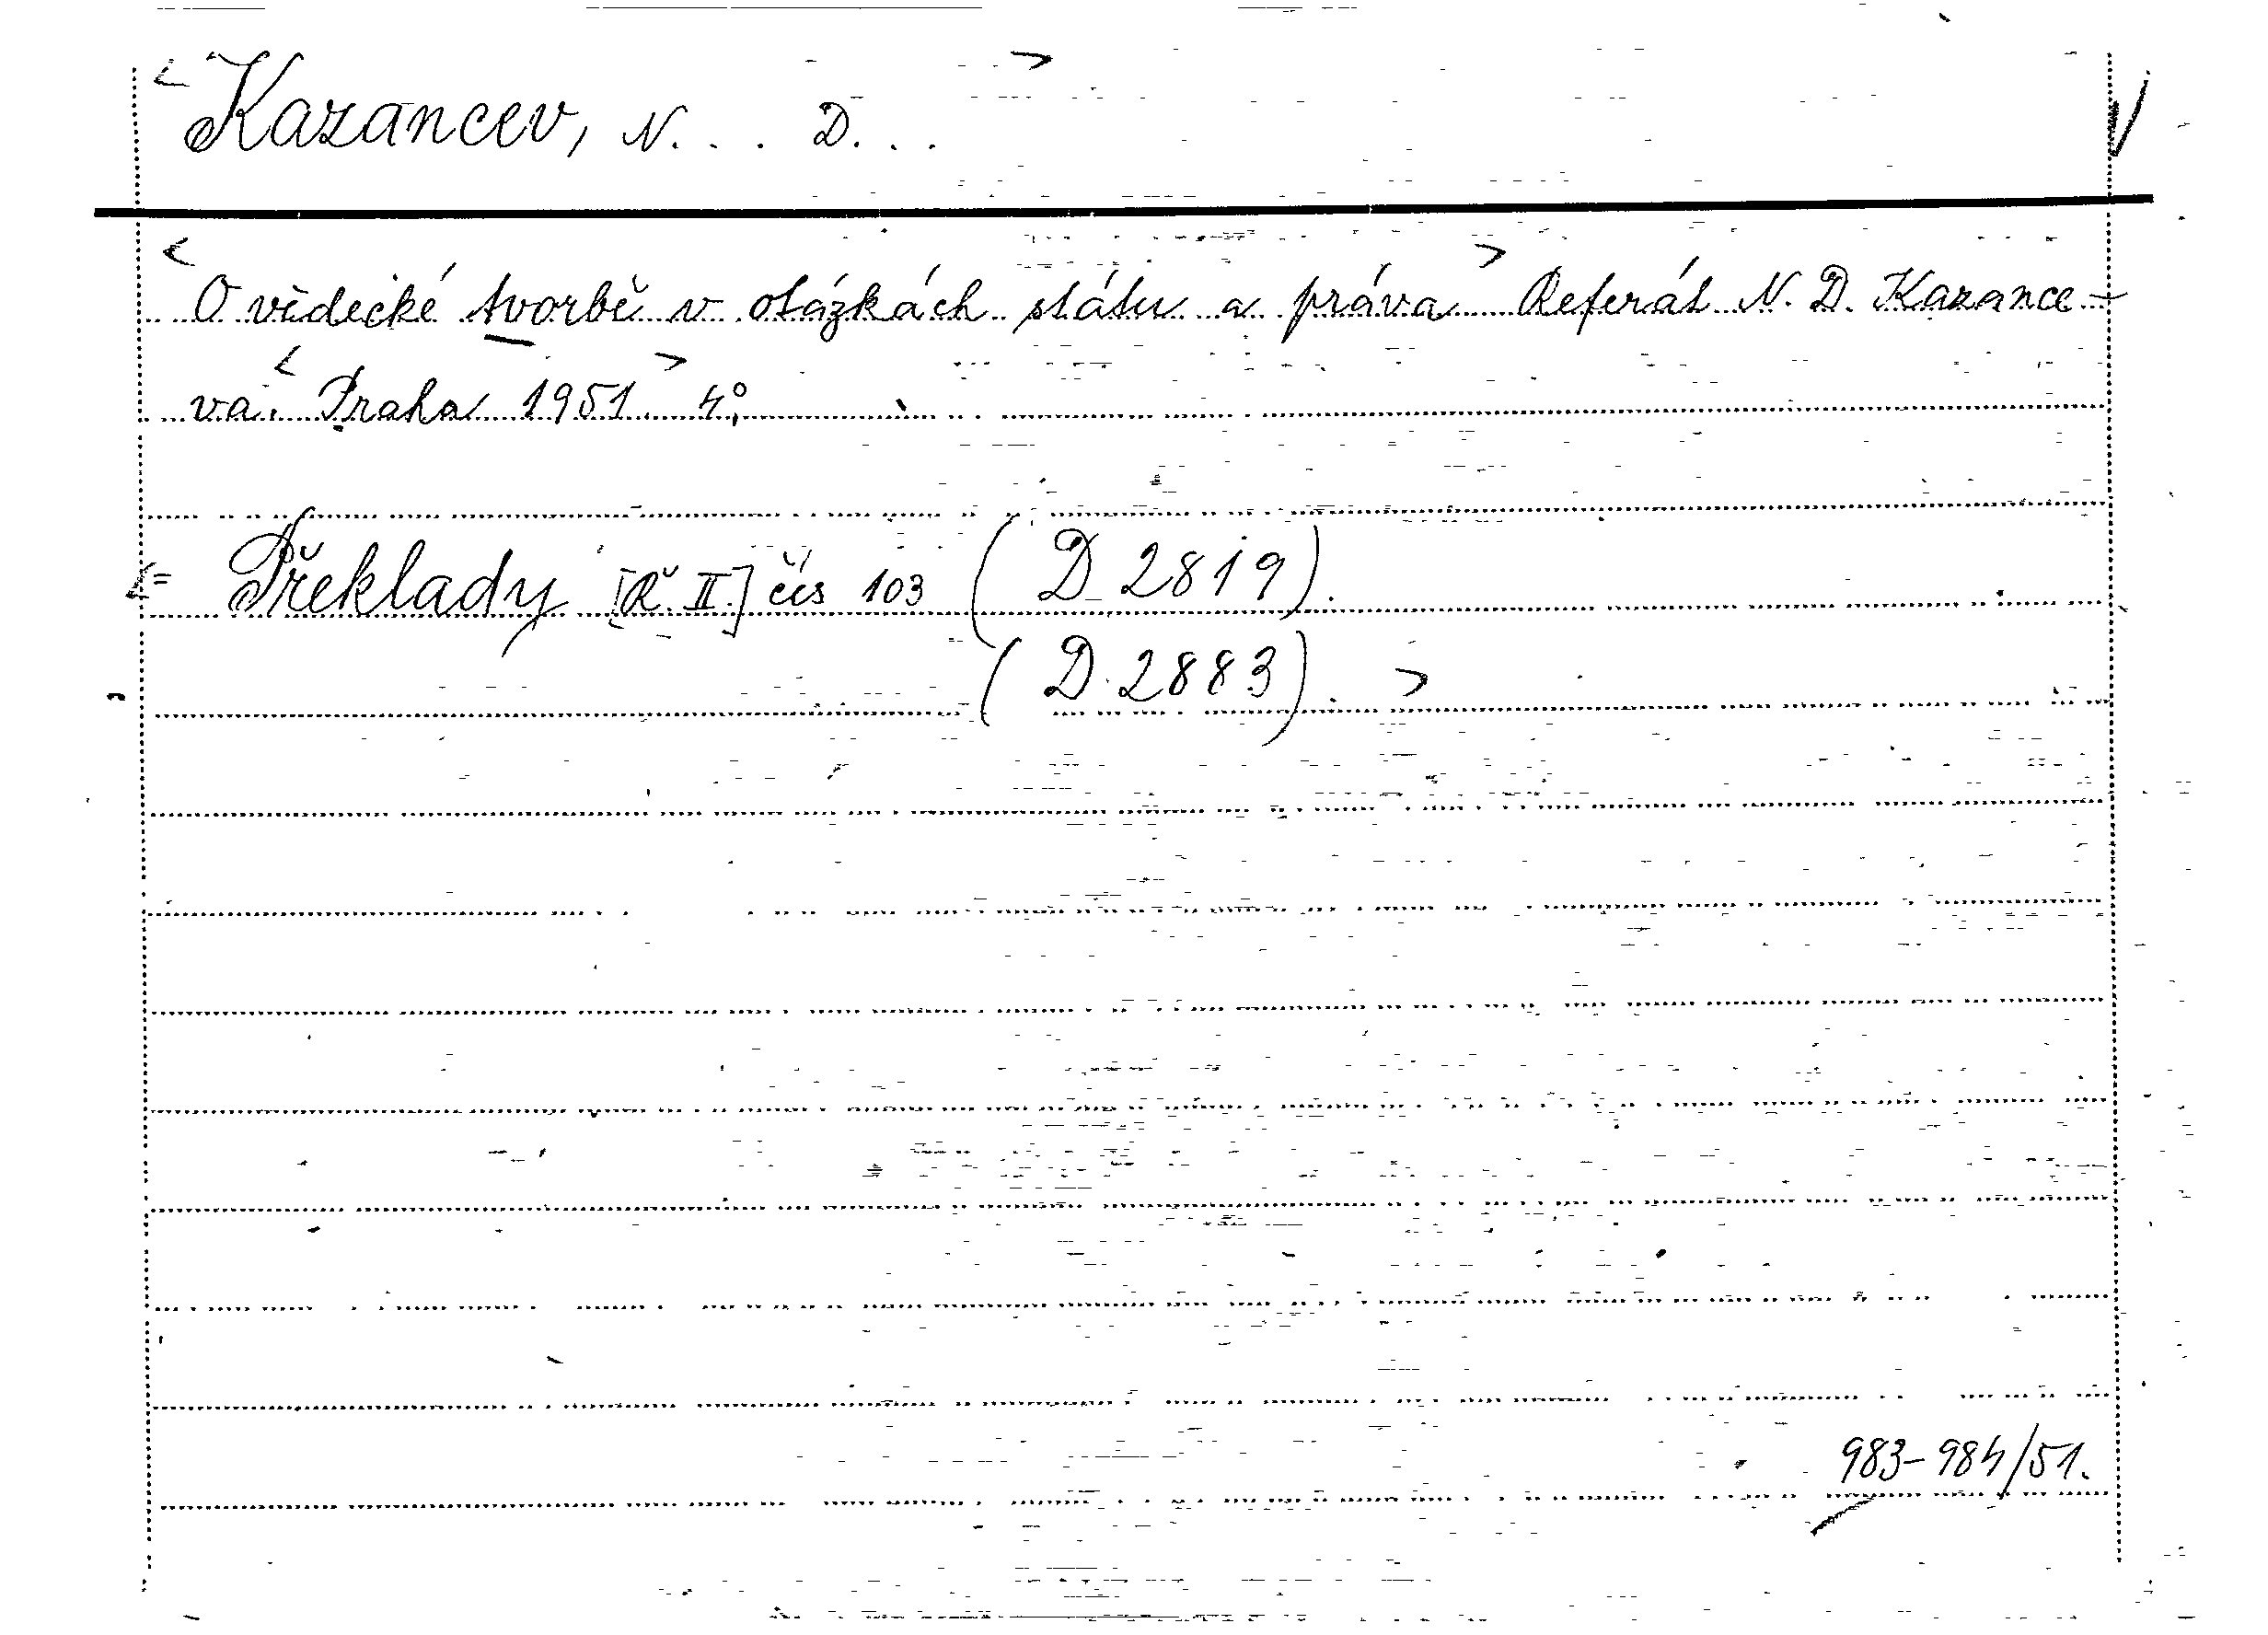 <Kazancev, N... D...>
<O vědecké tvorbě v otázkách státu a práva> Referát N. D. Kazance-
va. <Praha 1951.> 4°.
<= Překlady [Ř. II] čís 103 (D 2819).
(D. 2883). >
983-984/51.